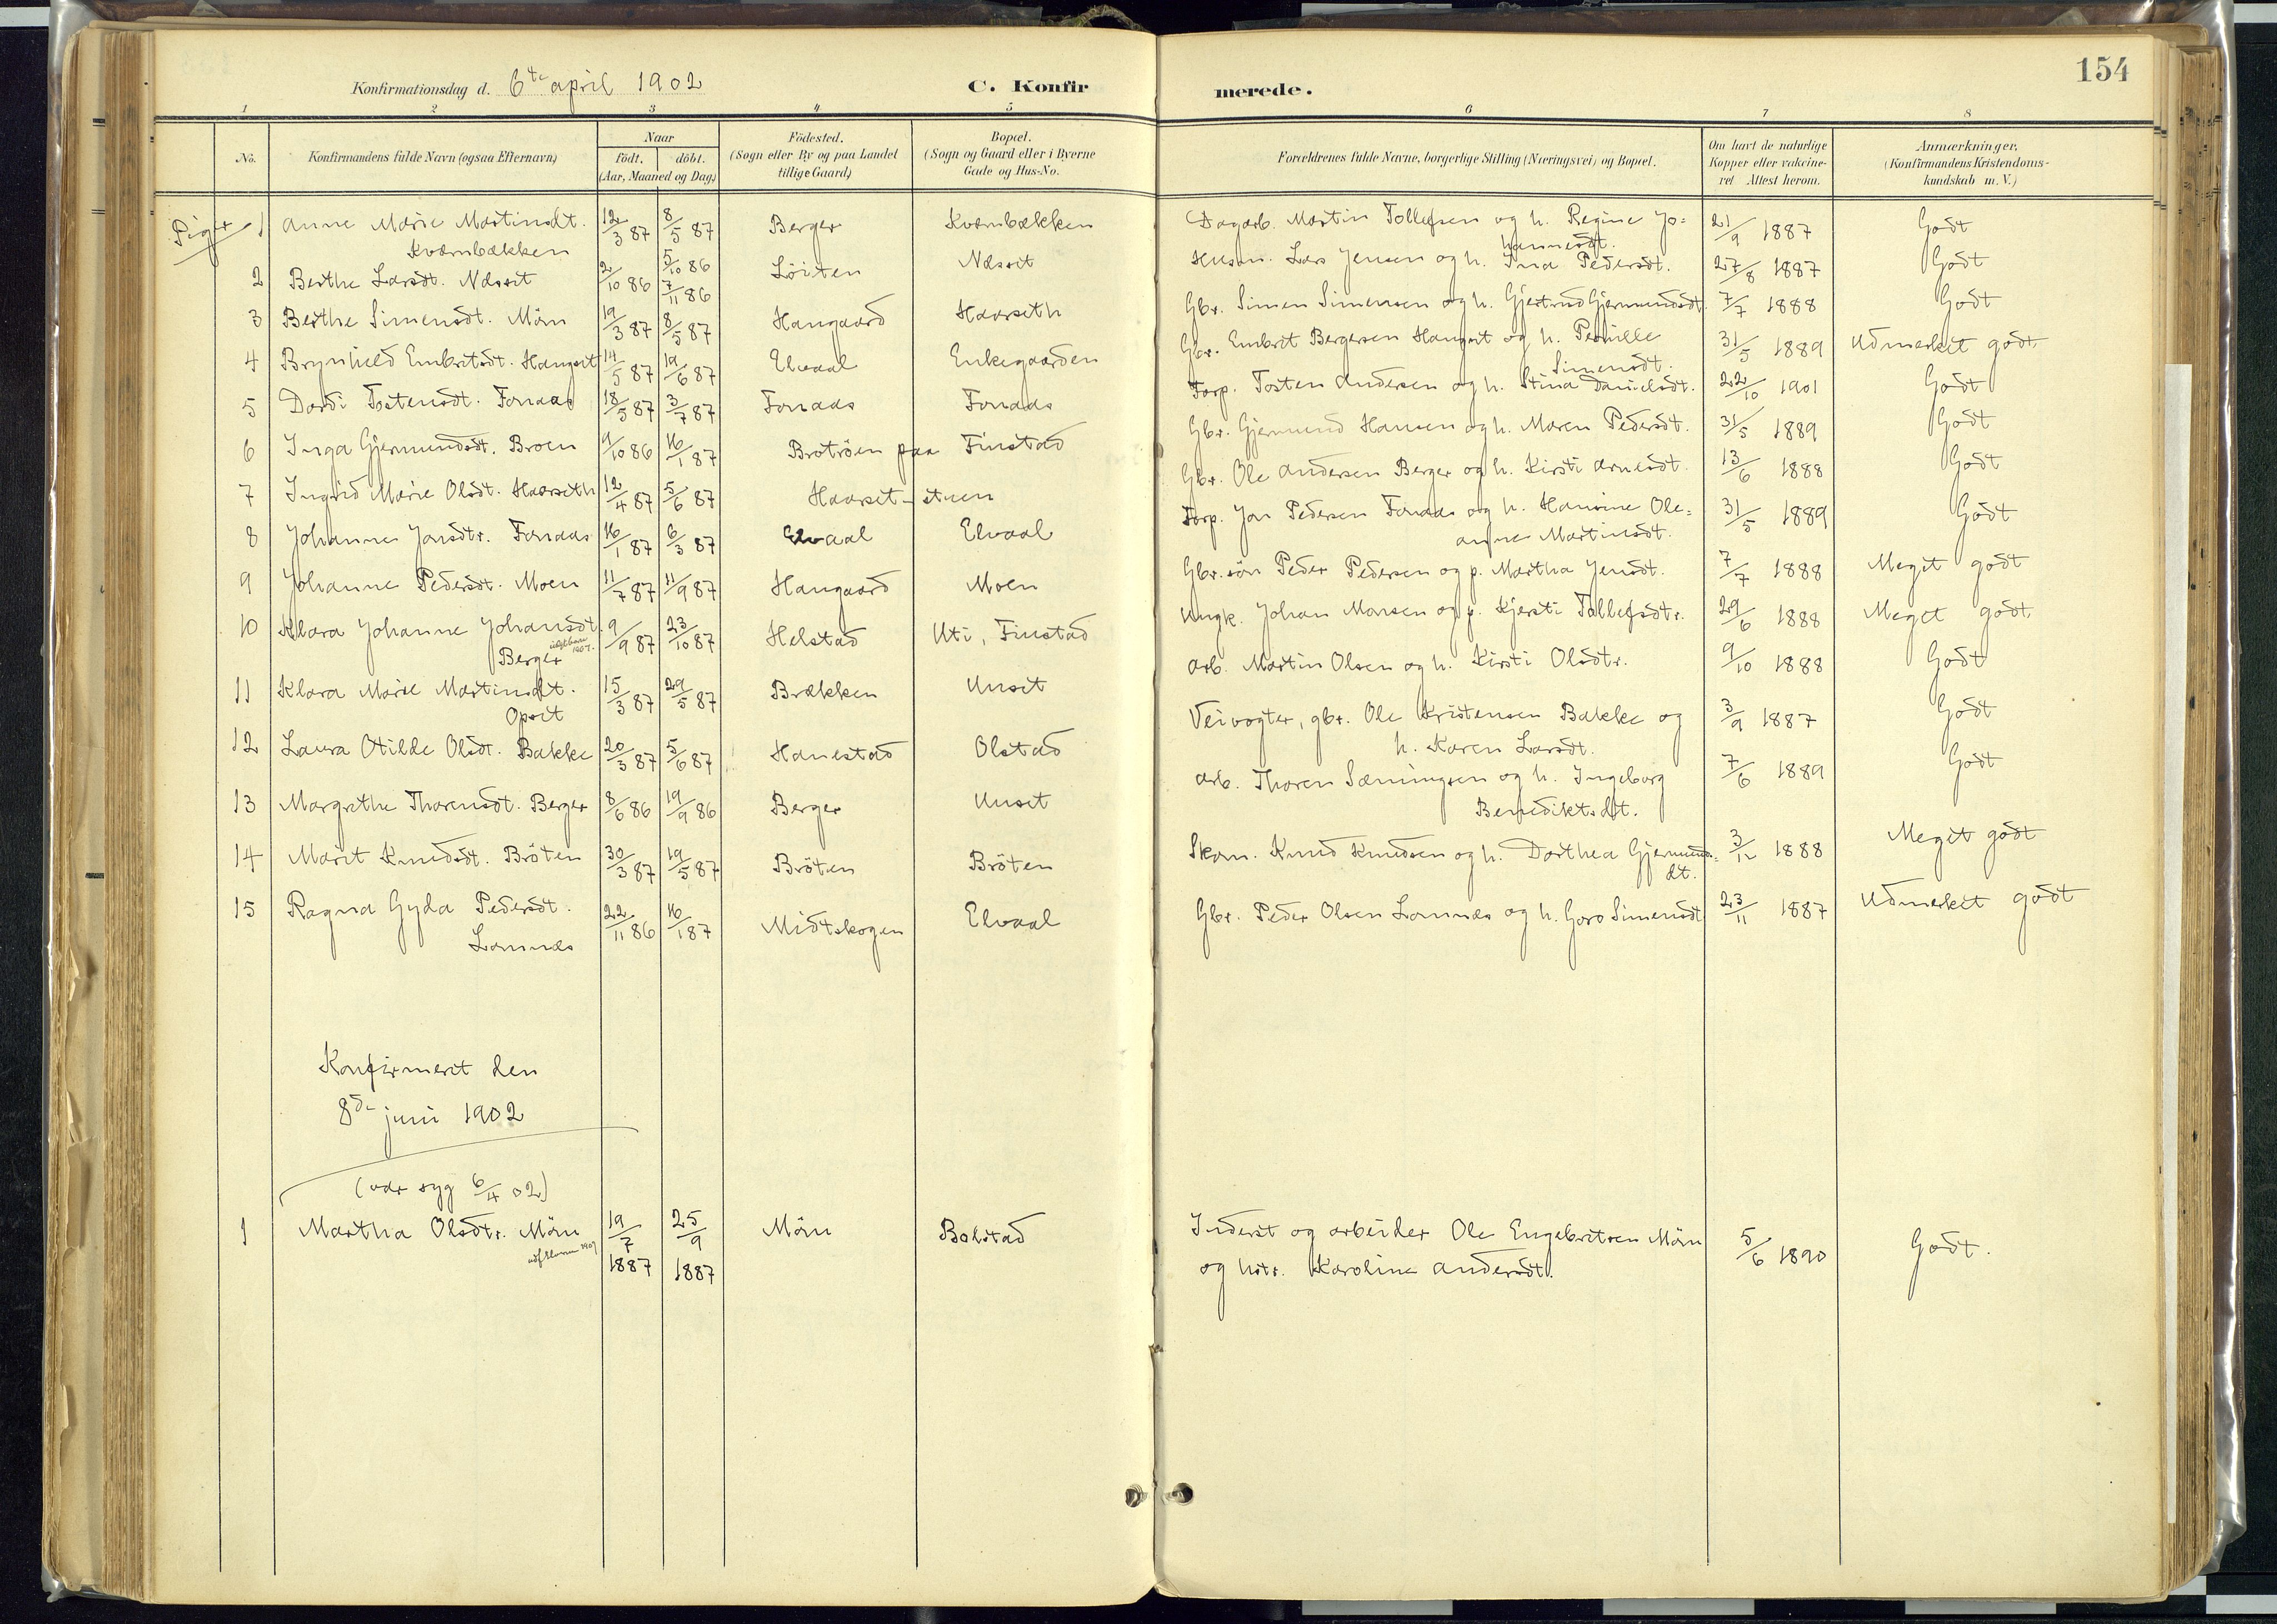 154
Konfirmationsdag d. 6te april 1902 C. Konfirmerede.
1 2 3 4 5 6 7 8
No. Konfirmandens fulde Navn (ogsaa Efternavn) Naar födt. döbt. (Aar, Maaned og Dag) Födested. (Sogn eller By og paa Landet tillige Gaard) Bopæl. (Sogn og Gaard eller i Byerne Gade og Hus-No. Forældrenes fulde Navne, borgerlige Stilling (Næringsvei) og Bopæl. Om havt de naturlige Kopper eller vakcineret Attest herom. Anmærkninger, (Konfirmandens Kristendomskundskab m. V.)
Piger
1 Anne Marie Martinsdt. Kværnbækken 12/3 87 8/5 87 Berger Kværnbækken Dagarb. Martin Tollefsen og h. Regine Johannesdt. 21/9 1887 Godt
2 Berthe Larsdt. Næsset 2/10 86 5/10 86 7/11 86 Löiten Næsset Husm. Lars Jensen og h. Ina Pedersdt. 27/8 1887 Godt
3 Berthe Simensdt. Möm 19/3 87 8/5 87 Haugaard Haarseth Gbr. Simen Simensen og h. Gjertrud Gjermundsdt. 7/7 1888 Godt
4 Brynhild Embretsdt. Haugset 14/5 87 19/6 87 Elvaal Enkegaarden Gbr. Embret Bergersen Haugset og h. Pernille Simensdt. 31/5 1889 Udmerket godt.
5 Dordi Tostensdt. Fonaas 18/5 87 3/7 87 Fonaas Fonaas Torp. Tosten Andersen og h. Stina Danielsdt. 22/10 1901 Godt
6 Inga Gjermundsdt. Broen 9/10 86 16/1 87 Brotröen paa Finstad Gbr. Gjermund Hansen og h. Maren Pedersdt. 31/5 1889 Godt
7 Ingrid Marie Olsdt. Haarseth 12/4 87 5/6 87 Haarset-stuen Gbr. Ole Andersen Berger og h. Kirsti Arnesdt. 13/6 1888 Godt
8 Johanne Jonsdtr. Fonaas 16/1 87 6/3 87 Elvaal Elvaal Torp. Jon Pedersen Fonaas og h. Hansine Oleanne Martinsdt. 31/5 1889 Godt
9 Johanne Pedersdt. Moen 11/7 87 11/9 87 Haugaard Moen Gbr.sön Peder Pedersen og p. Martha Jensdt. 7/7 1888 Meget godt
10 Klara Johanne Johansdt. Berger 9/9 87 23/10 87 Helstad Uti, Finstad Ungk. Johan Monsen og p. Kjersti Tollefsdtr. 29/6 1888 Meget godt.
11 Klara Marie Martinsdt. Opset 15/3 87 29/5 87 Brækken Unset Arb. Martin Olsen og h. Kirsti Olsdtr. 9/10 1888 Godt
12 Laura Otilde Olsdt. Bakke 20/3 87 5/6 87 Hanestad Olstad Veivogter, gbr. Ole Kristensen Bakke og h. Karen Larsdt. 3/9 1887 Godt
13 Margrethe Thorensdt. Berger 8/6 86 19/9 86 Berger Unset Arb. Thoren Sæmingsen og h. Ingeborg Benediktsdt. 7/6 1889 Godt
14 Marit Knudsdt. Bröten 30/3 87 19/5 87 Bröten Bröten Skom. Knud Knudsen og h. Dorthea Gjermundsdt. 3/12 1888 Meget godt
15 Ragna Gyda Pedersdt. Lomnæs 22/11 86 16/1 87 Midtskogen Elvaal Gbr. Peder Olsen Lomnæs og h. Goro Simensdt. 23/11 1887 Udmerket godt
Konfirmert den
8de juni 1902
(var syg 6/4 02)
1 Martha Olsdtr. Möm 19/7 1887 25/9 1887 Möm Bolstad Inderst og arbeider Ole Engebretsen Möm og hstr. Karoline Andersdt. 5/6 1890 Godt.